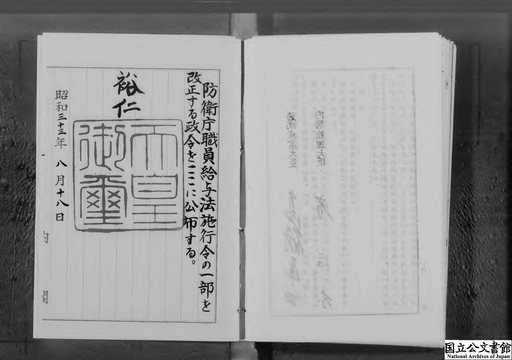 防衛庁職員給与法施行令の一部を
改正する政令をここに公布する。
裕仁
天皇
御璽
昭和三十三年八月十八日
国立公文書館
National Archives of Japan